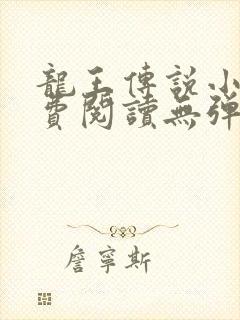 龍王傳說小
費閱讀無彈
詹寧斯